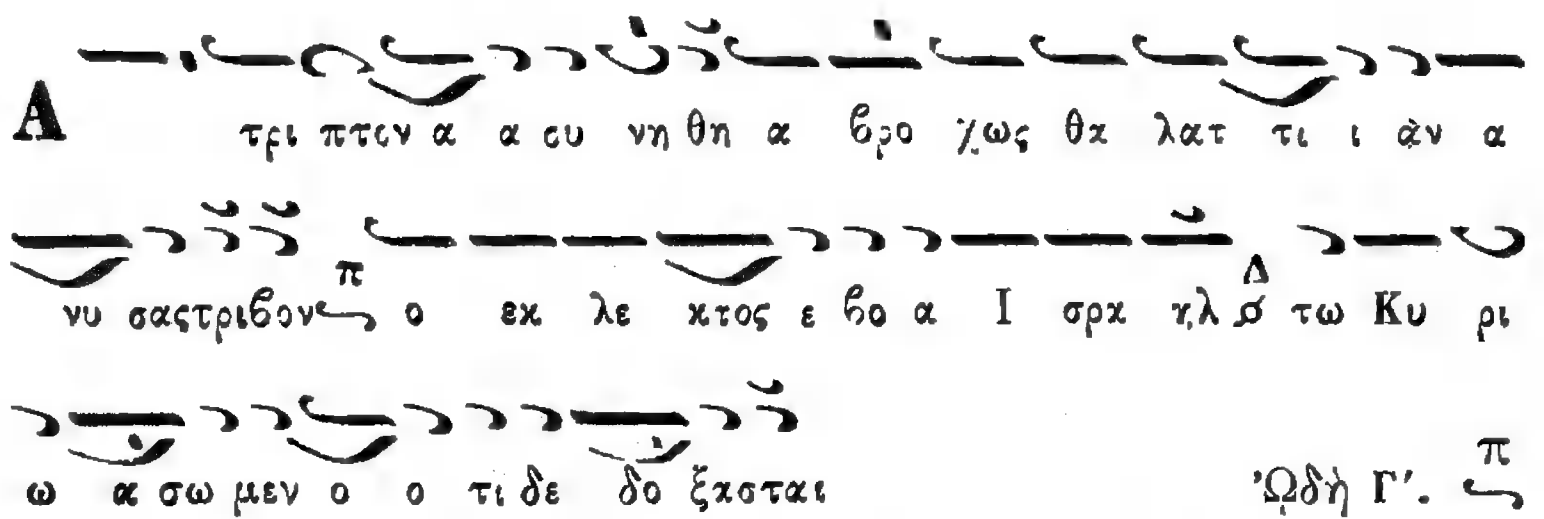 Α τρι πτον α α συ νη θη α βρο χως θα λατ τι ι αν α
νυ σας τριβον π ο εκ λε κτος ε βο α Ι σρα ηλ Δ τω Κυ ρι
ω α σω μεν ο ο τι δε δο ξασται Ὠδὴ Γ'. π